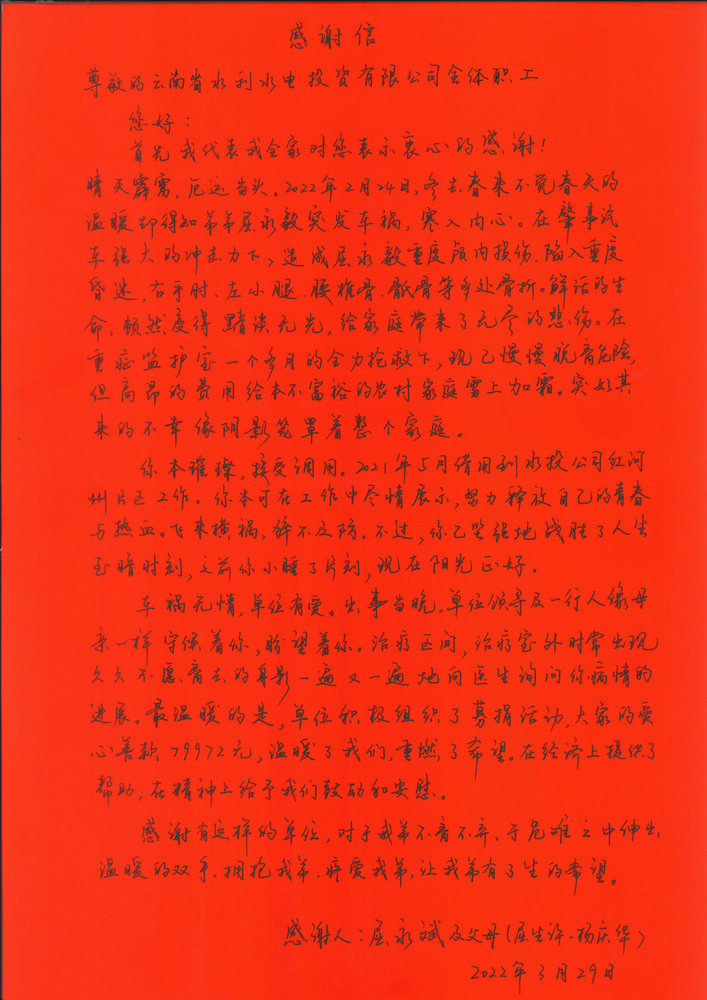 感谢信
尊敬的云南省水利水电投资有限公司全体职工
您好：
首先我代表我全家对您表示衷心的感谢！
晴天霹雳，厄运当头。2022年2月24日，冬去春来不觉春天的
温暖却得知弟弟屈永毅突发车祸，寒入内心。在肇事汽
车强大的冲击力下，造成屈永毅重度颅内损伤，陷入重度
昏迷，右手肘、左小腿、腰椎骨、骶骨等多处骨折。鲜活的生
命，顿然变得黯淡无光，给家庭带来了无尽的悲伤。在
重症监护室一个多月的全力抢救下，现已慢慢脱离危险，
但高昂的费用给本不富裕的农村家庭雪上加霜。突如其
来的不幸像阴影笼罩着整个家庭。
你本璀璨，接受调用。2021年5月借用到水投公司红河
州片区工作。你本可在工作中尽情展示，努力释放自己的青春
与热血。飞来横祸，猝不及防。不过，你已坚强地战胜了人生
至暗时刻，之前你小睡了片刻，现在阳光正好。
车祸无情，单位有爱。出事当晚，单位领导及一行人像母
亲一样守候着你，盼望着你。治疗区间，治疗室外时常出现
久久不愿离去的身影一遍又一遍地向医生询问你病情的
进展。最温暖的是，单位积极组织了募捐活动，大家的爱
心善款79972元，温暖了我们，重燃了希望。在经济上提供了
帮助，在精神上给予我们鼓励和安慰。
感谢有这样的单位，对于我弟不离不弃，于危难之中伸出
温暖的双手，拥抱我弟、疼爱我弟，让我弟有了生的希望。
感谢人：屈永斌及父母（屈生许、杨庆华）
2022年3月29日